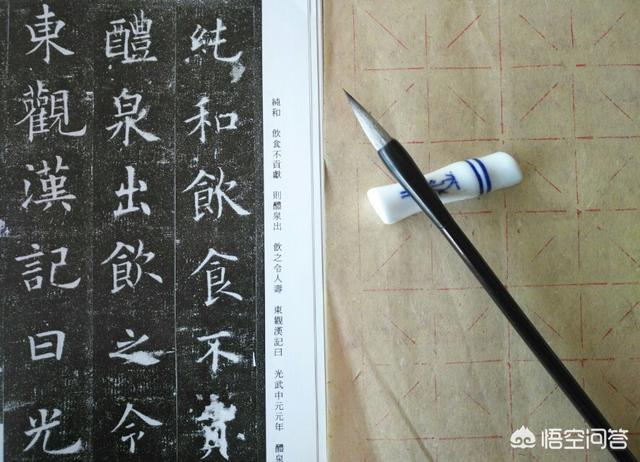 純和飲食不貢
醴泉出飲之令
東觀漢記曰光
純和 飲食不貢獻 則醴泉出 飲之令人壽 東觀漢記曰 光武中元元年 醴泉
悟空问答